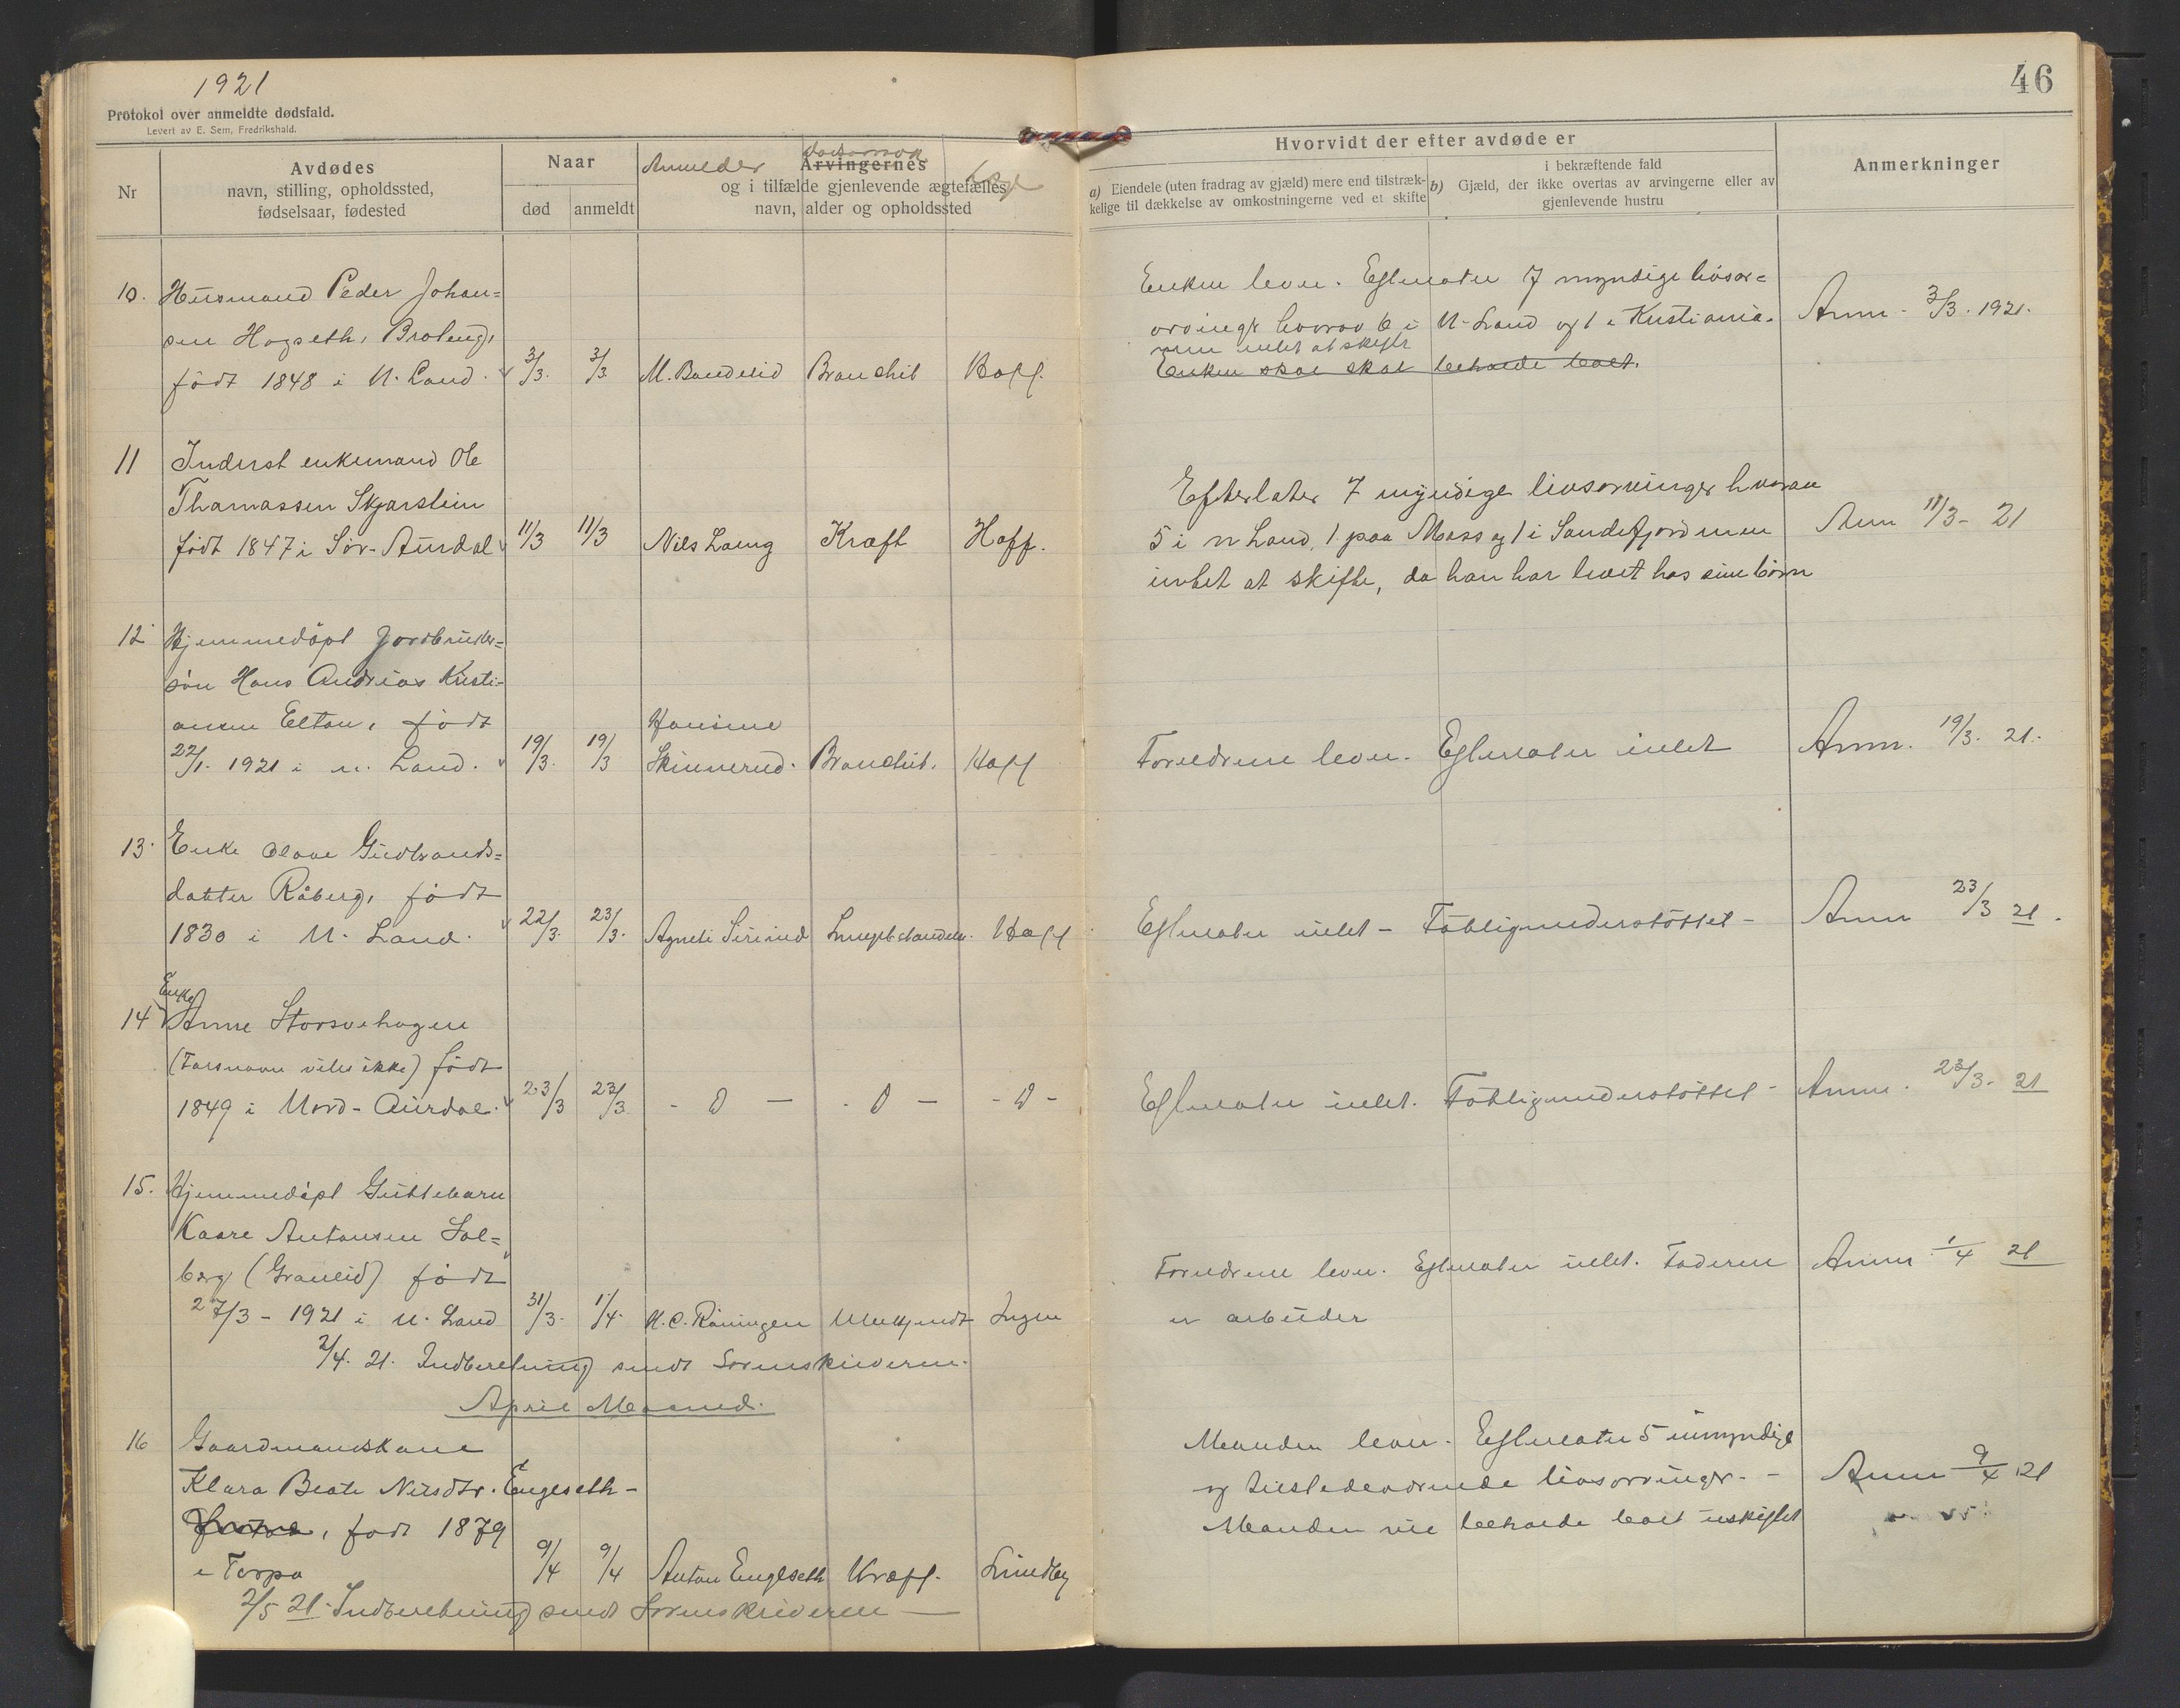 1921
46
Protokol over anmeldte dødsfald.
Levert av E. Sem, Fredrikshald.
Nr
Avdødes
navn, stilling, opholdssted,
fødselsaar, fødested
Naar
død
anmeldt
Anmelder
Dødsaarsak
Læge
Arvingernes
og i tilfælde gjenlevende ægtefælles
navn, alder og opholdssted
Hvorvidt der efter avdøde er
a) Eiendele (uten fradrag av gjæld) mere end tilstræk-
kelige til dækkelse av omkostningerne ved et skifte
i bekræftende fald
b) Gjæld, der ikke overtas av arvingerne eller av
gjenlevende hustru
Anmerkninger
10. Husmand Peder Johan=
sen Hogseth, Broleng,
født 1848 i N. Land. 3/3. 3/3 M. Bandelid Bronchit Hoff.
Enken lever. Efterlater 7 myndige livsar=
vinger hvorav 6 i N. Land og 1 i Kristiania.
men intet at skifte
Enken skal skal beholde boet.
Anm. 3/3. 1921.
11 Inderst enkemand Ole
Thomassen Skjarstein
født 1847 i Sør-Aurdal 11/3 11/3 Nils Lang Kræft Hoff.
Efterlater 7 myndige livsarvinger hvorav
5 i N Land, 1 paa Moss og 1 i Sandefjord men
intet at skifte, da han har levet hos sine børn
Anm 11/3- 21
12 Hjemmedøpt Jordbruker=
søn Hans Andreas Kristi-
ansen Elton, født
22/1. 1921 i N. Land. 19/3. 19/3 Hansine
Skinnerud. Bronchit. Hoff
Forældrene lever. Efterlater intet
Anm. 19/3. 21.
13. Enke Olave Gudbrands=
datter Råberg, født
1830 i N. Land. 22/3. 23/3. Agnete Sirirud Hoff
Efterlater intet - Fattigunderstøttet -
Anm 23/3 21.
14 Enke
Anne Storsvehagen
(Farsnavn vites ikke) født
1849 i Nord-Aurdal. 23/3 23/3 - 0 - - 0 - - 0 -
Efterlater intet. Fattigunderstøttet -
Anm. 23/3. 21
15. Hjemmedøpt Guttebarn
Kaare Antonsen Sol=
berg (Granlid) født
27/3 - 1921 i N. Land 31/3. 1/4. K. O. Råningen Ukjendt Ingen
Forældrene lever. Efterlater intet. Faderen
er arbeider
Anm 1/4 21
2/4. 21. Indberetning sendt Sorenskriveren.
April Maaned.
16 Gaardmandskone
Klara Beate Nilsdtr. Engelseth -
, født 1879
i Torpa 9/4 9/4 Anton Engelseth Kræft. Lundby
Manden lever. Efterlater 5 umyndige
og tilstedeværende livsarvinger. -
Manden vil beholde boet uskiftet
Anm 9/4 21
2/5 21. Indberetning sendt Sorenskriveren